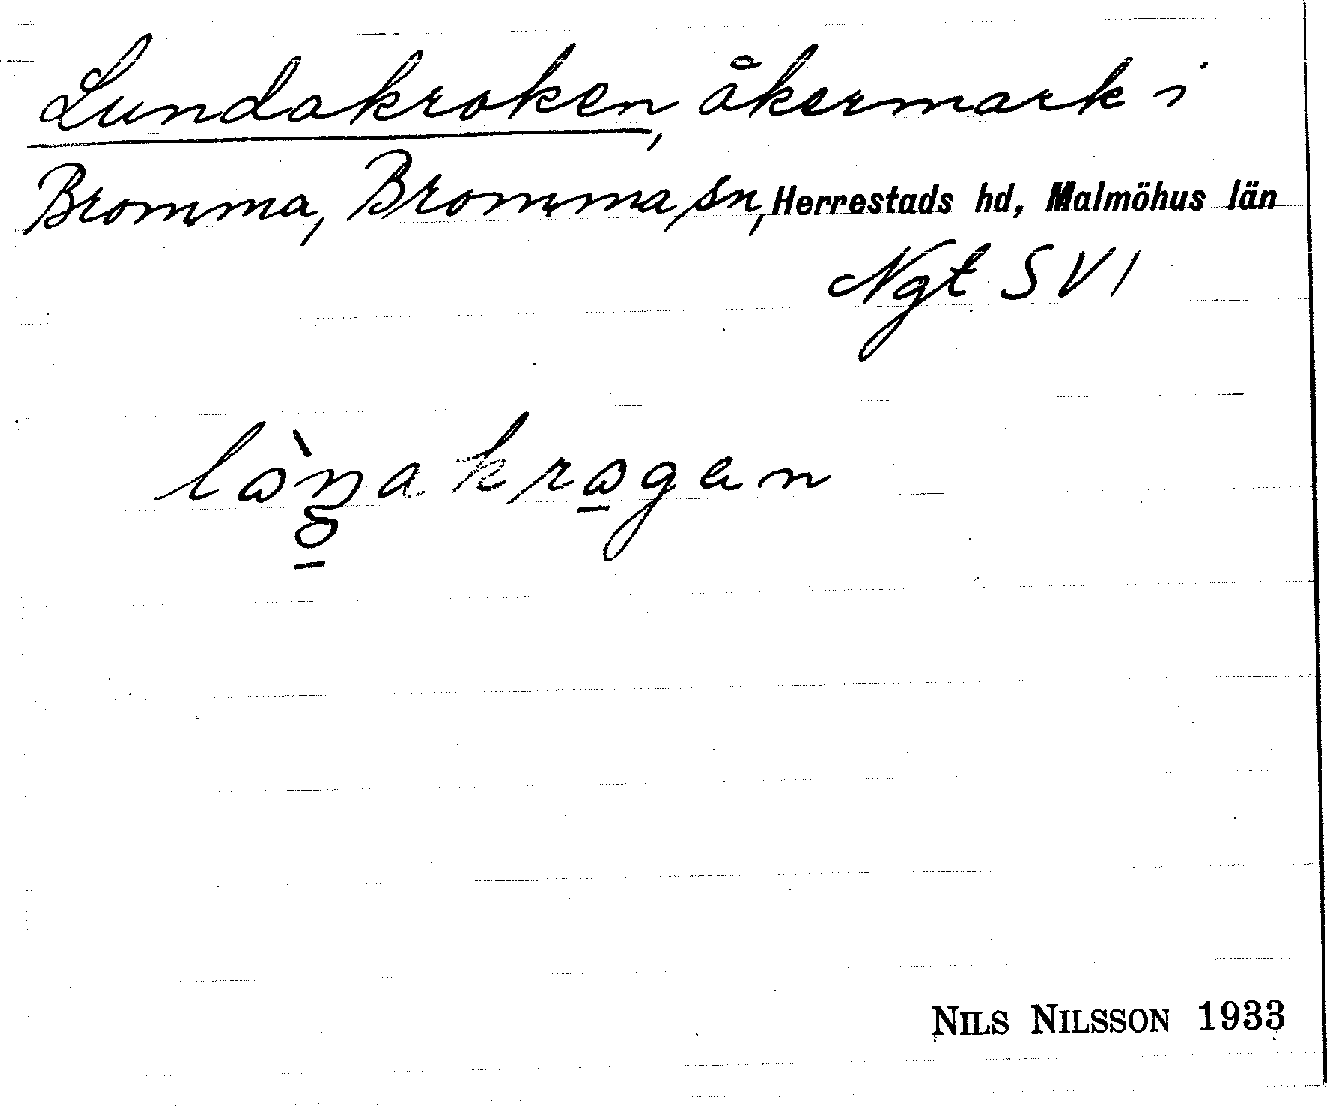 Lundakroken, åkermark i
Bromma, Bromma sn, Herrestads hd, Malmöhus län
Ngt SV I
NILS NILSSON 1933